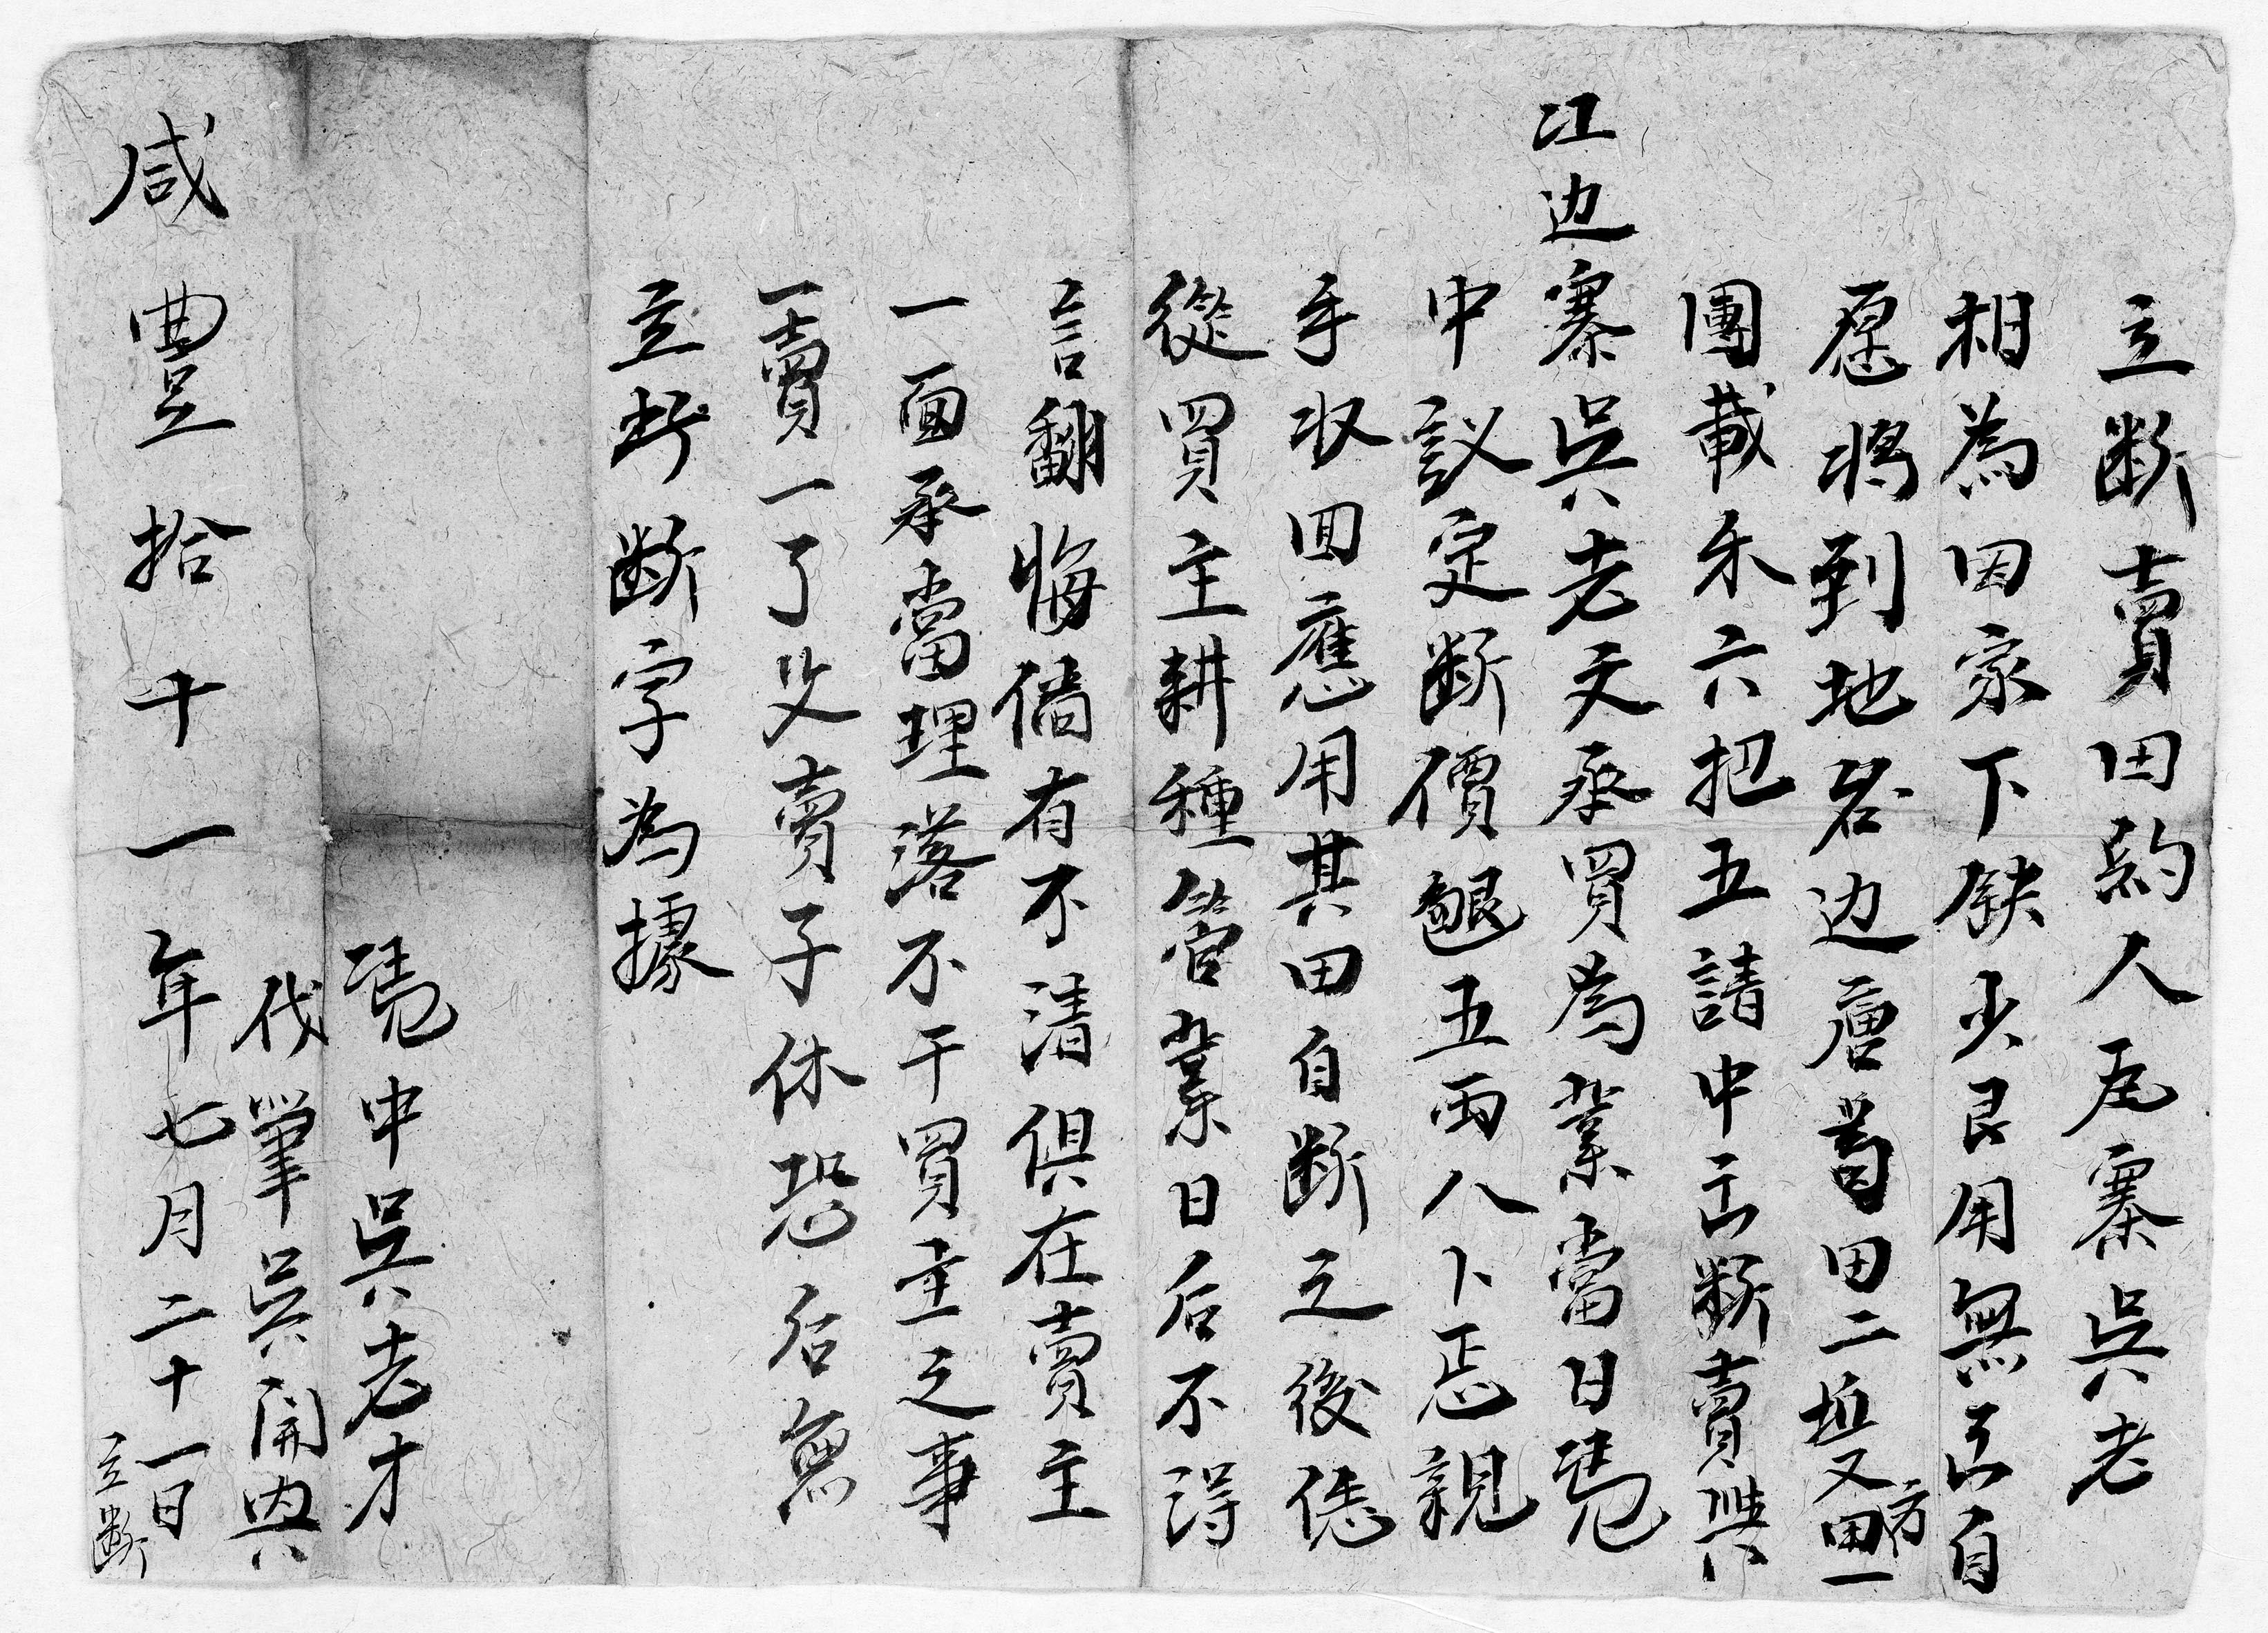 立断賣田約人瓦寨吳老
相為因家下缺少艮用無区自
愿将到地名岩边唐苟田二坵又田一
方
團載禾六把五請中言断賣與
江边寨吳老文承買為業當日憑
中議定断價銀五両八卜正親
手收回應用其田自断之後任
從買主耕種管業日后不得
言翻悔倘有不清俱在賣主
一面承當理落不干買主之事
一賣一了父賣子休恐后無
立此断字為據
憑中吳老才
代筆吳開興
咸豐拾十一年七月二十一日
立断